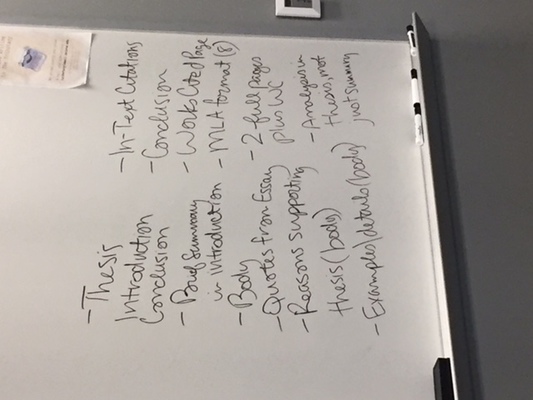 - Thesis
Introduction
Conclusion
- Brief Summary
in Introduction
- Body
- Quotes from Essay
- Reasons supporting
thesis (body)
- Examples/details (body)
- In-Text Citations
- Conclusion
- Works Cited Page
- MLA format (8)
- 2 full pages
plus WC
- Analysis in
thesis, not
just summary